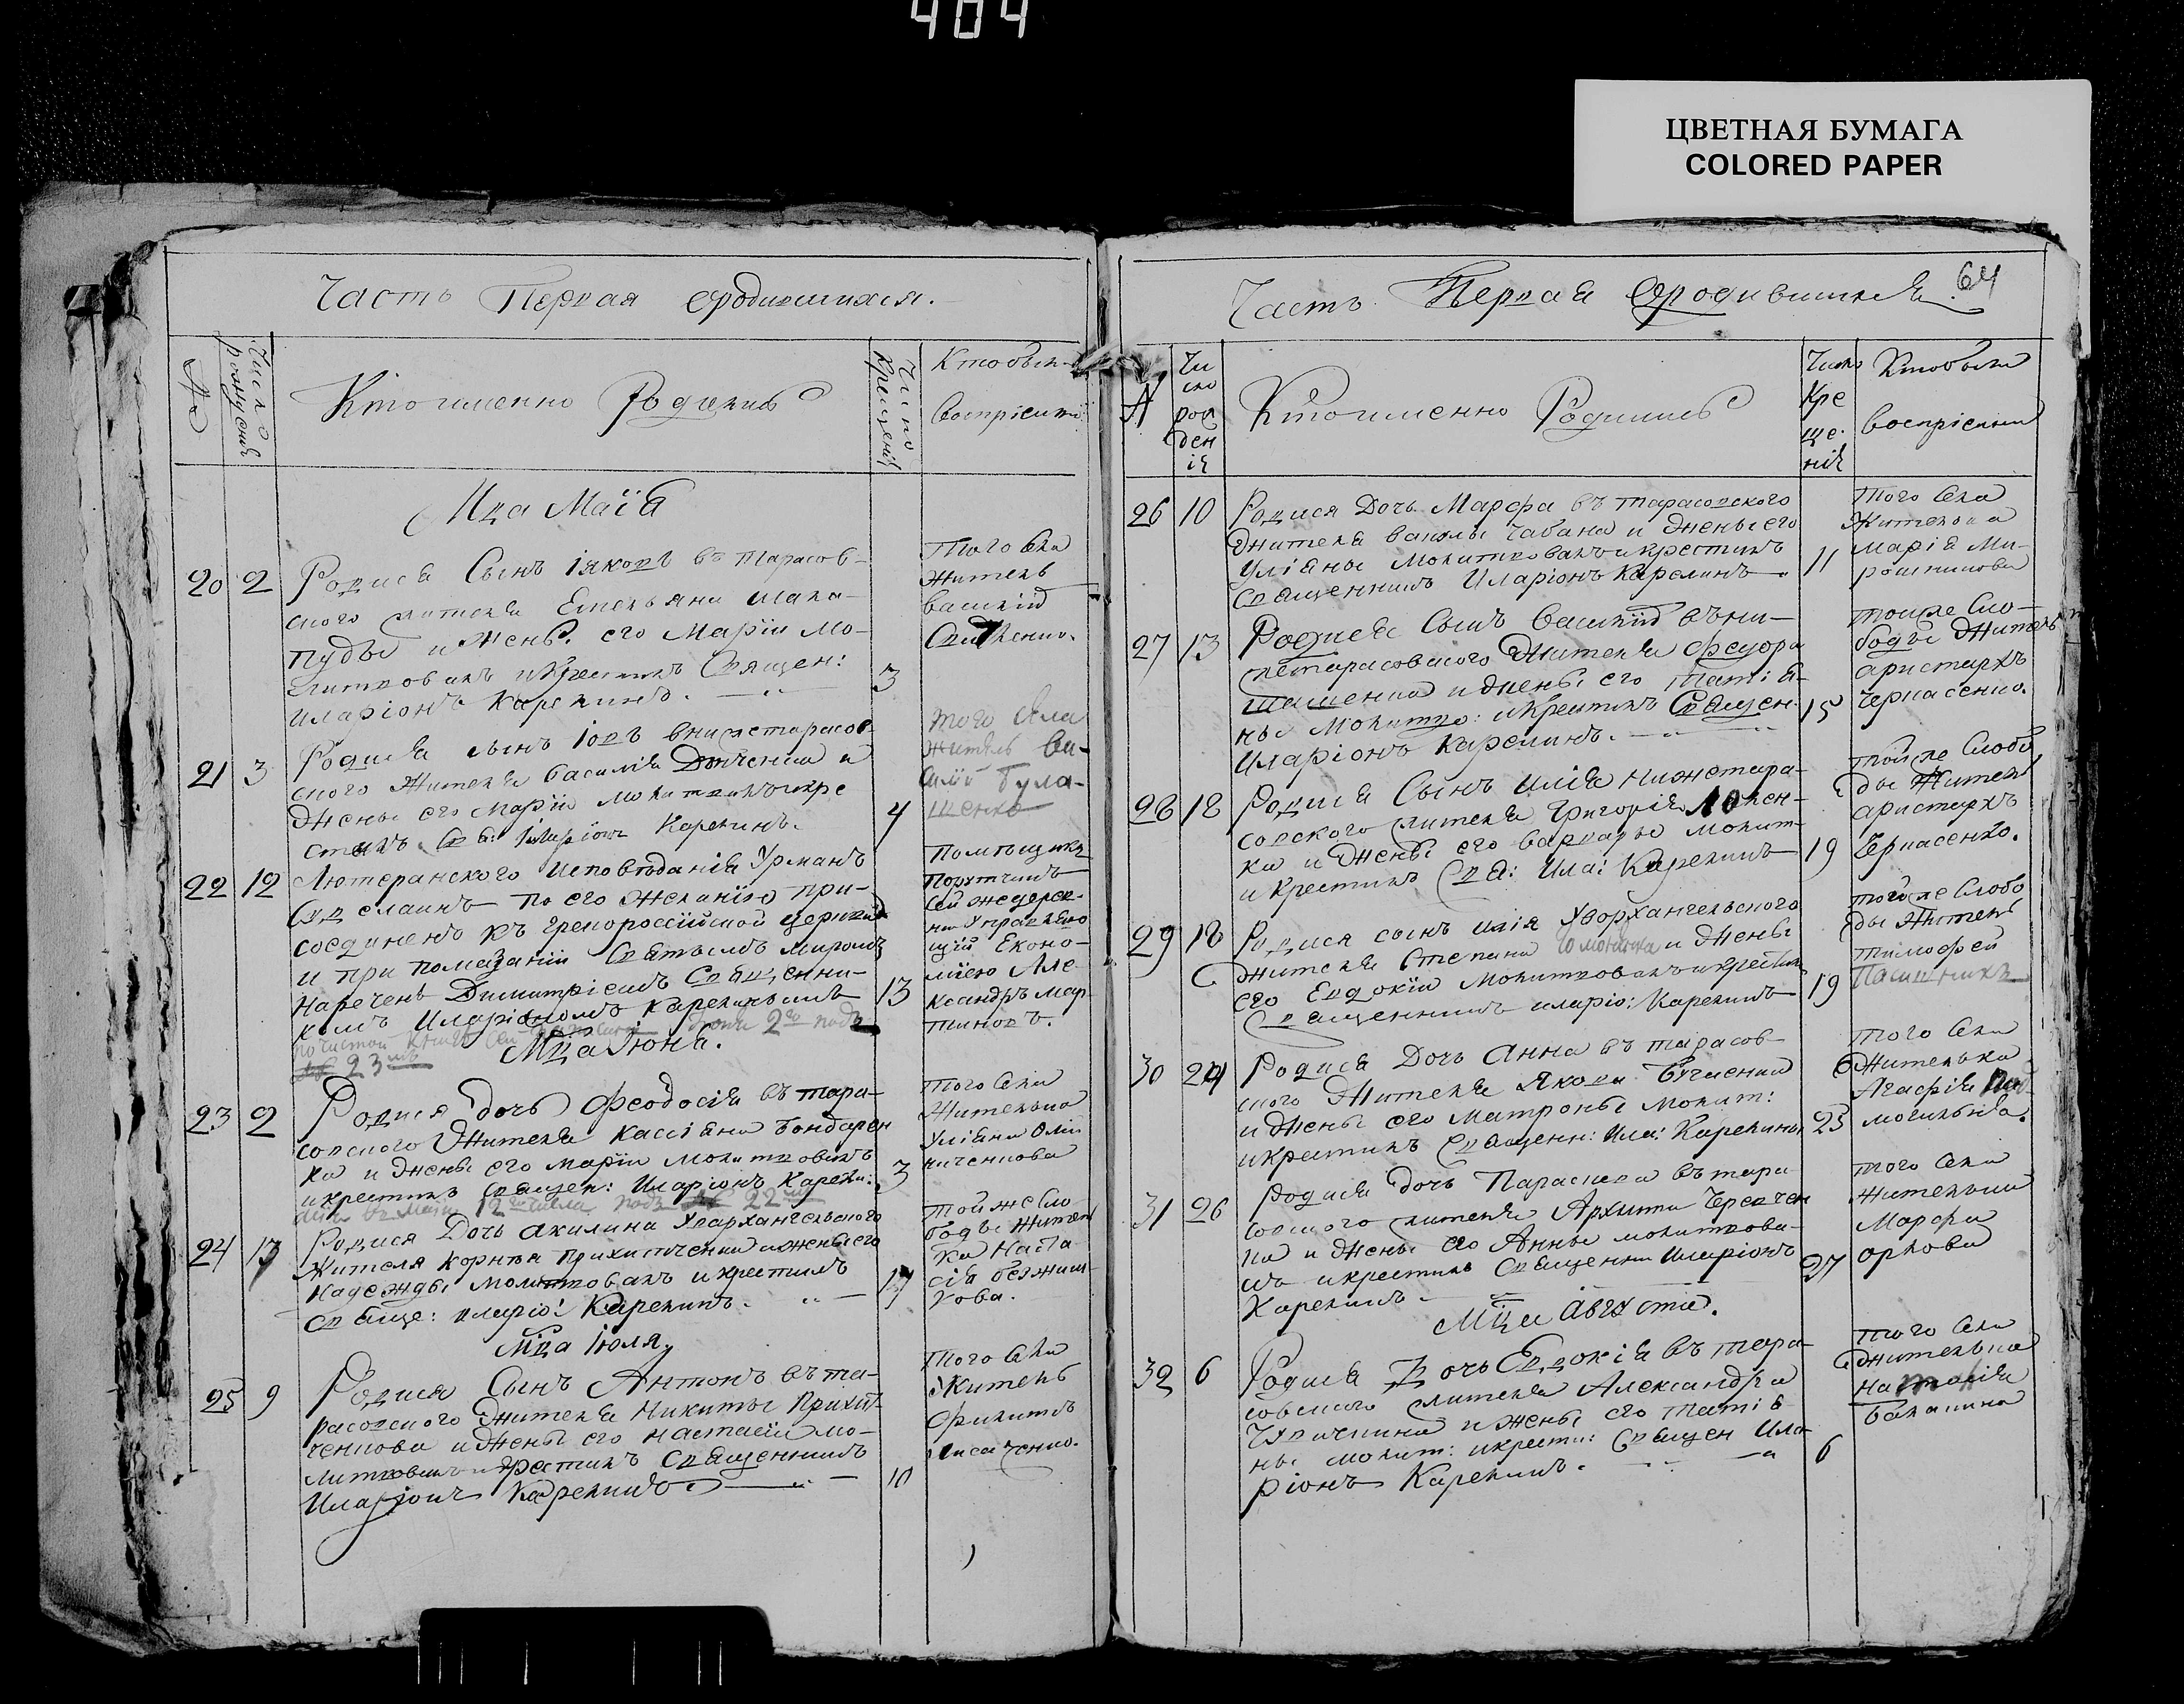 404
ЦВЕТНАЯ БУМАГА
COLORED PAPER
Часть Первая ородившихся.
Число рождения
Кто именно Родился
Число крещения
Кто были
воспріемн:
Мца Маія
20 2 Родися Сынъ Іяковъ въ тарасов-
ского жителя Емельяна шала-
пуды и жены его Маріи мо-
литвовалъ и крестилъ Священ:
иларіонъ Карелинъ.
3
Того села
житель
василій
21 3 Родися сынъ Іовъ внижетарасов-
ского жителя василія
жены его маріи молитвовалъ и кре
стилъ Свя: иларіонъ Карелинъ.
4
того села
житель ва-
силій була-
шенко
22 12 Лютеранского исповѣданія Урманъ
по его желанію при-
соединенъ къ грекороссійской церкви
и при помазаніи Святымъ миромъ
наречень Димитріемъ Священни-
комъ Иларіономъ Карелинымъ
13
Помѣщикъ
Порутчикъ
сей же дерев-
ни Управляю
щій Еконо-
міею Але-
ксандръ Мар-
тиновъ.
23
Мца Іюня.
23 2 Родися дочь Феодосія въ тара-
совского жителя Касіяна бондарен
ка и жены его маріи молитвовалъ
и крестилъ Священ: Иларіонъ Карели:
3
того села
жителька
Уліяна Олій
ниченкова
12 числа подъ № 22
24 17 Родися Дочь акилина Увархангельского
жителя корнѣя Прихитченка и жены его
надежды молитвовалъ и крестилъ
Свяще: иларіо: Карелинъ.
17
той же сло
боды жител
ка Наста
сія
Мца Іюля,
25 9 Родися Сынъ Антонъ въ та-
расовского жителя Никиты Прихит-
ченкова и жены его настасіи мо-
литвовалъ и крестилъ Священникъ
Иларіонъ Карелинъ.
10
Того села
житель
Филиппъ
Лисаченко.
Часть Первая ородившихся.
64
Чи
сло
рож
ден
ія
Кто именно Родился
Число
Кре
ще-
нія
Кто были
воспріемни
26 10 Родися Дочь Марфа въ тарасовского
жителя вакулы Чабана и жены его
Уліяны Молитвовалъ и крестилъ
Священникъ Иларіонъ Карелинъ
11
того села
жителька
марія Ми-
рошникова
27 13 Родися Сынъ василій въ ни-
жетарасовского жителя феодора
и жены его татія-
ны Молитво: и крестилъ Священ
Иларіонъ Карелинъ.
15
той же сло-
боды житель
аристархъ
Черкасенко.
28 18 Родися Сынъ илія нижетара-
совского жителя григорія
ка и жены его варвары молит-
и крестилъ Свя: Ила: Карелинъ
19
той же слобо
ды житель
аристархъ
Черкасенко.
29 18 Родися сынъ илія Увархангельского
жителя Степана и жены
его Евдокіи Молитвовалъ и крестил
Священникъ иларіо: Карелинъ
19
той же слобо
ды житель
тимофей
30 24 Родися Дочь Анна въ тарасов-
ского жителя Якова
и жены его матроны молит:
и крестилъ Священн: Ила: Карелинъ
25
того села
жителька
Агафія
31 26 Родися дочь Параскева въ тара
совского жителя Архипа
ка и жены его Анны молитвова-
лъ и крестилъ Священни Иларіонъ
Карелинъ.
27
того села
жителька
Марфа
орлова
Мца августа.
32 6 Родися Дочь Евдокія въ тара-
совского жителя Александра
и жены его татія-
ны молит: и крести: Священ Ила-
ріонъ Карелинъ.
6
того села
жителька
наталія